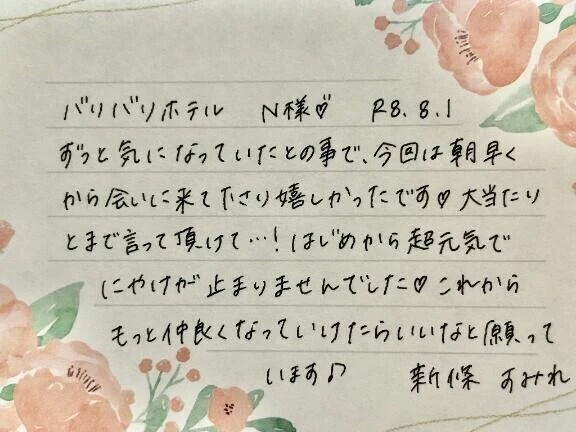 バリバリホテル N様♡ R8.8.1
ずっと気になっていたとの事で、今回は朝早く
から会いに来て下さり嬉しかったです♡大当たり
とまで言って頂けて…！はじめから超元気で
にやけが止まりませんでした♡これから
もっと仲良くなっていけたらいいなと願って
います♪ 新條 すみれ